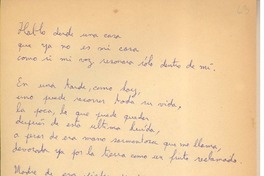 Hablo desde una casa
que ya no es mi casa
como si mi voz resonara sólo dentro de mí.
En una tarde, como hoy,
uno puede recorrer toda su vida,
la poca, la que puede quedar
después de esta última huida,
a pesar de esa mano sarmentosa que me llama,
devorada ya por la tierra como un fruto
Nadie de esa